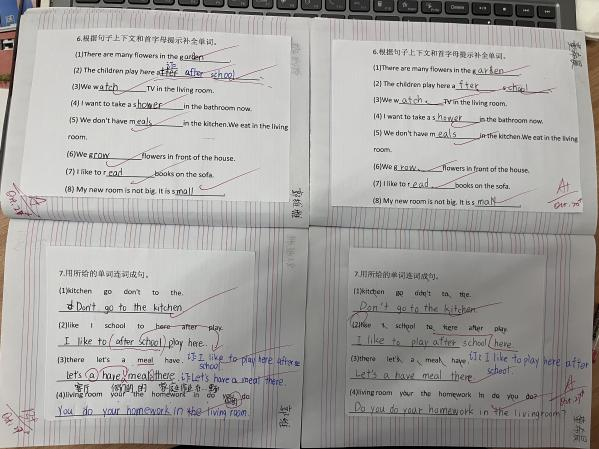 6.根据句子上下文和首字母提示补全单词。
(1)There are many flowers in the garden
(2) The children play here after 订: after school
(3)We watch TV in the living room.
(4) I want to take a shower in the bathroom now.
(5) We don't have meals in the kitchen.We eat in the living
room.
(6)We grow flowers in front of the house.
(7) I like to read books on the sofa.
(8) My new room is not big. It is small
6.根据句子上下文和首字母提示补全单词。
(1)There are many flowers in the garden
(2) The children play here after school
(3)We watch TV in the living room.
(4) I want to take a shower in the bathroom now.
(5) We don't have meals in the kitchen.We eat in the living
room.
(6)We grow flowers in front of the house.
(7) I like to read books on the sofa.
(8) My new room is not big. It is small
A+
7.用所给的单词连词成句。
(1)kitchen go don't to the.
Don't go to the kitchen
(2)like I school to here after play.
I like to (after school) play here.
(3)there let's a meal have. 订: I like to play here after
school
let's a have meal there. 订: Let's have a meal there.
(4)living room your the homework in do you do
You do your homework in the living room.
7.用所给的单词连词成句。
(1)kitchen go don't to the.
Don't go to the kitchen.
(2)like I school to here after play.
I like to play after school here.
(3)there let's a meal have. 订: I like to play here after
school.
Let's a have meal there
(4)living room your the homework in do you do?
Do you do your homework in the living room?